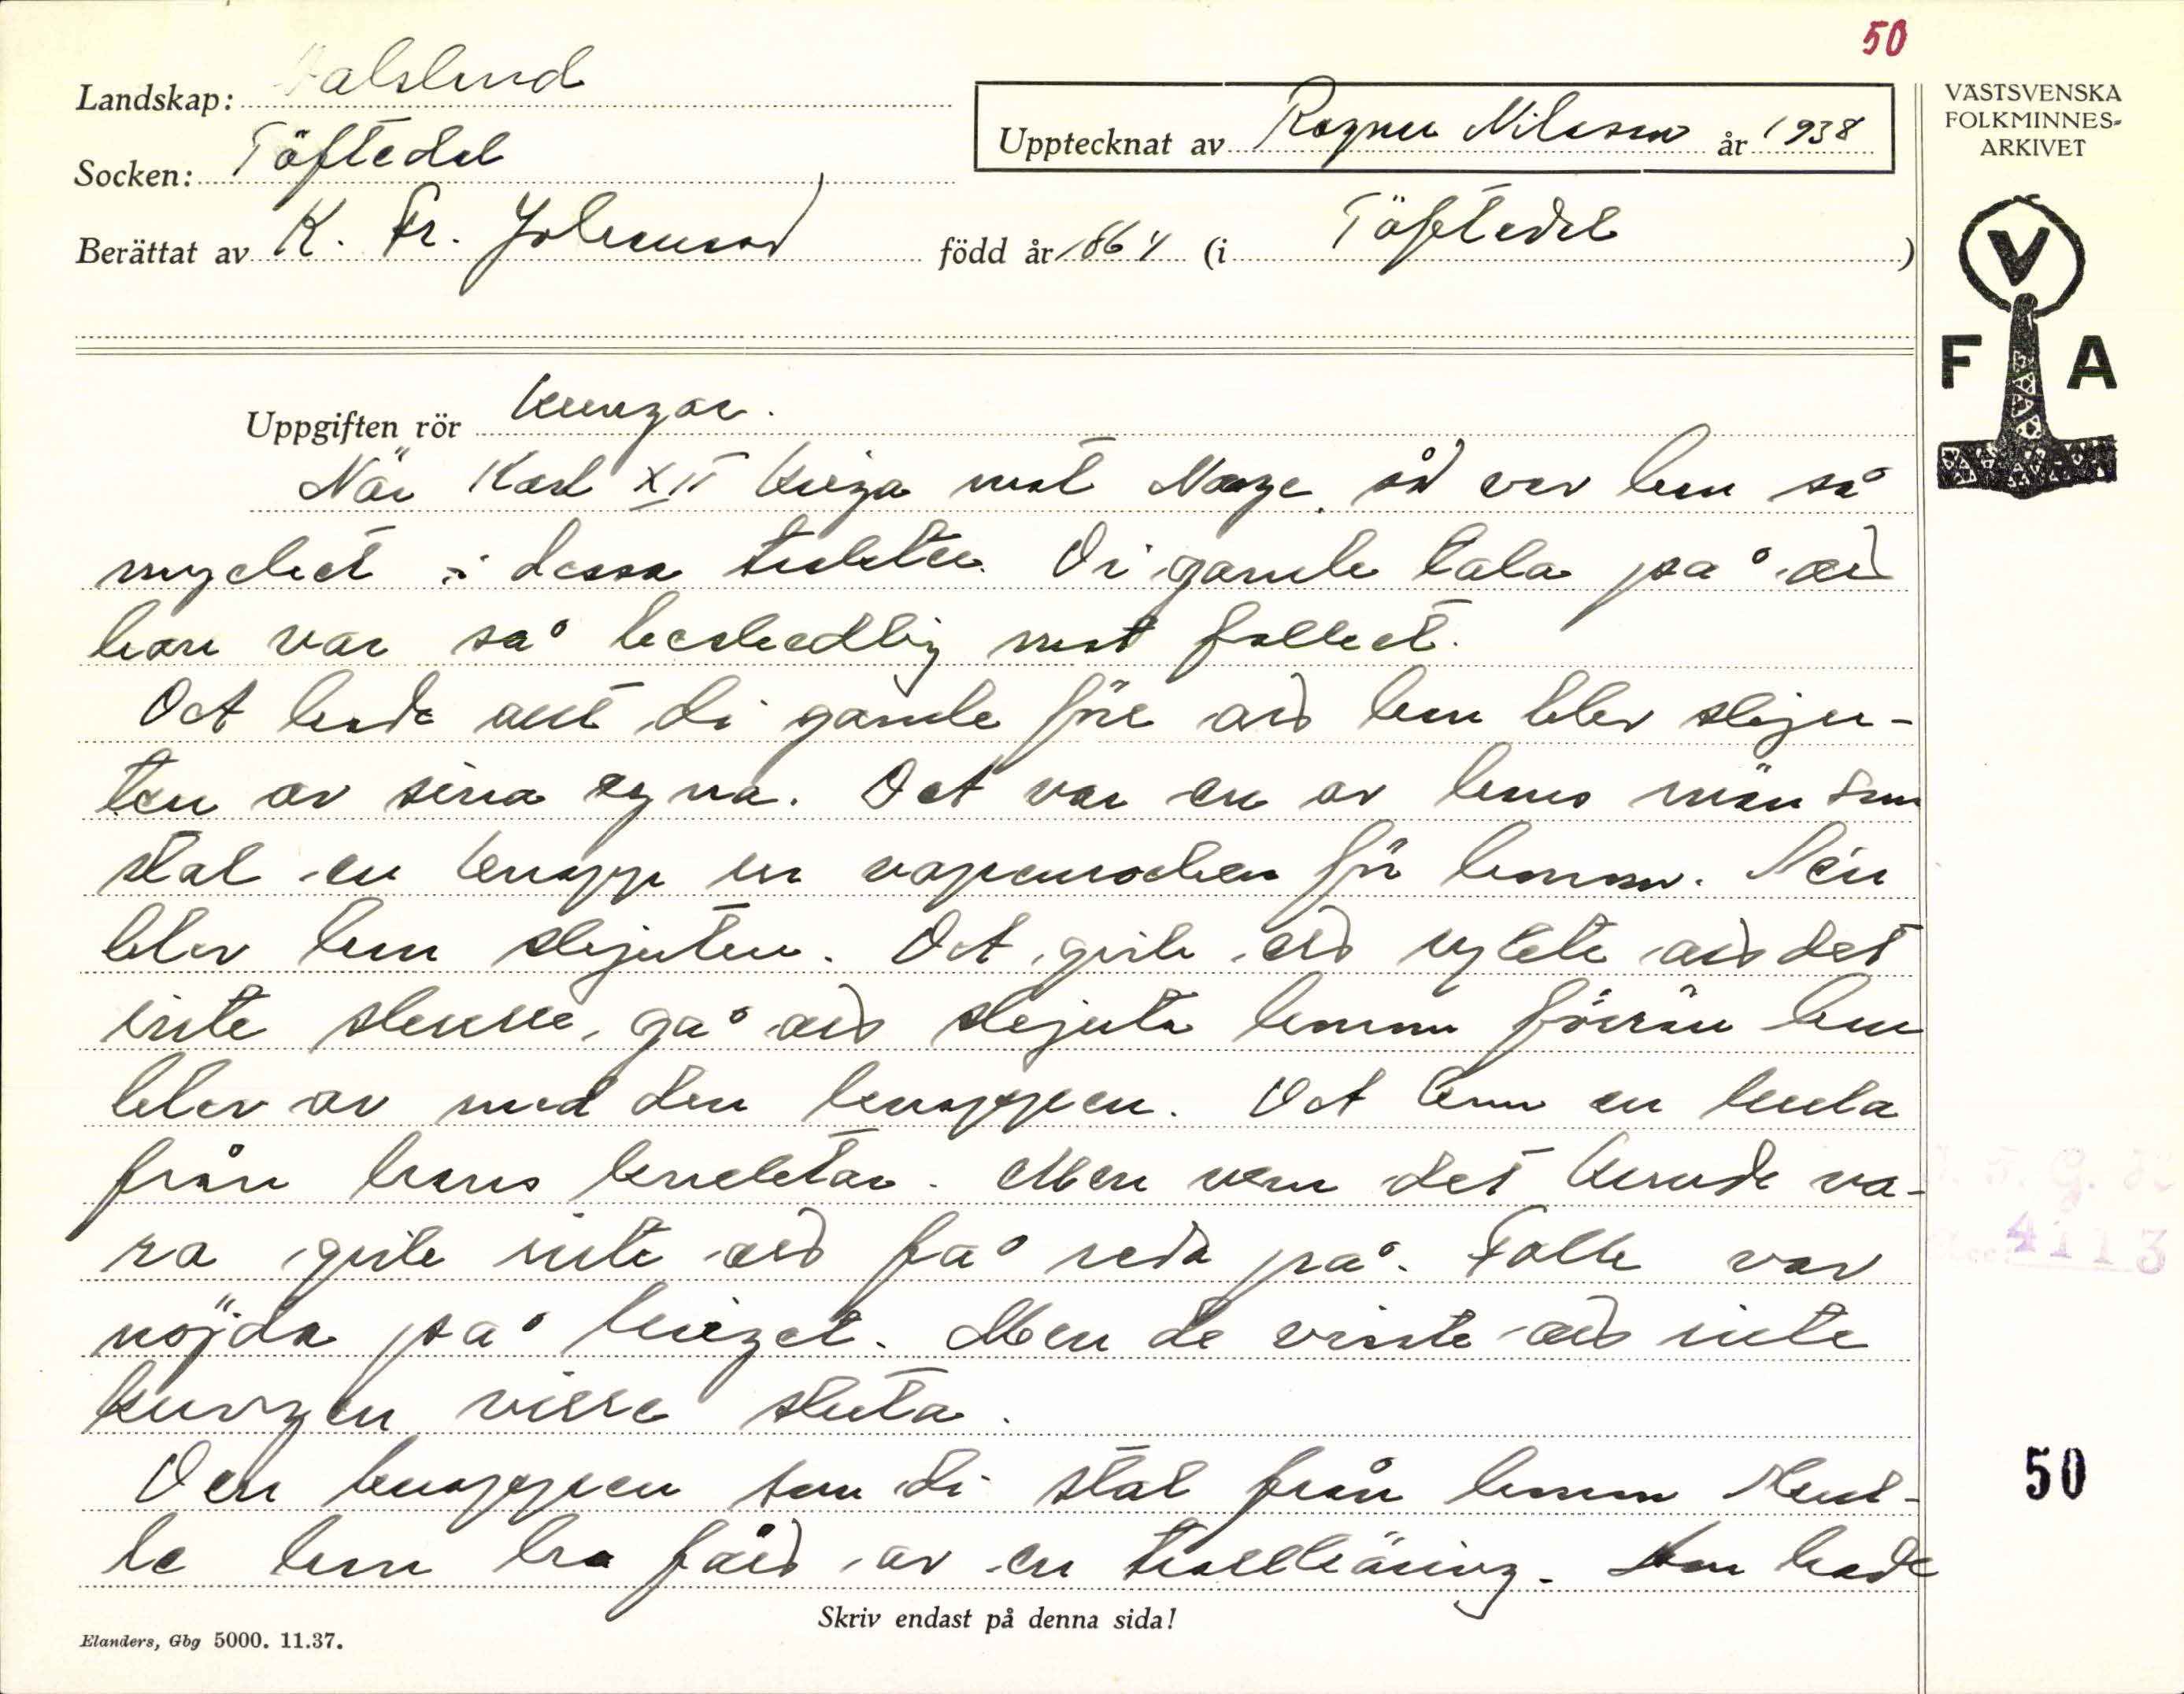 50
Landskap: Dalsland
Upptecknat av Ragnar Nilsson år 1938
Socken: Töftedal
Berättat av K. Fr. Johansson född år 1864 (i Töftedal)
VÄSTSVENSKA
FOLKMINNES-
ARKIVET
V
F A
Uppgiften rör Kungar.
När Karl XII kriga mot Norge så var han så
mycket i dessa trakter. Di gamle tala på att
han var så beskedlig mot folket.
Det hade allt di gamle före att han blev skju-
ten av sina egna. Det var en av hans män som
stal en knapp ur vapenrocken för honom. Sen
blev han skjuten. Det gick ett rykte att det
inte skulle gå att skjuta honom förrän han
blev av med den knappen. Det kom en kula
från hans trakter. Men vem det kunde va-
ra gick inte att få reda på. Folk var
nöjda på kriget. Men de visste att inte
kungen ville sluta.
Den knappen som di stal från honom skul-
le han ha fått av en trollkäring. Som hade
4113
50
Skriv endast på denna sida!
Elanders, Gbg 5000. 11.37.